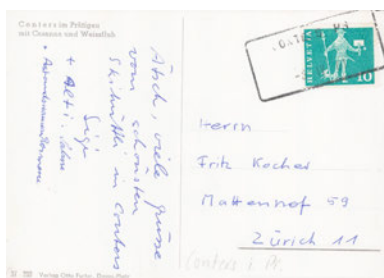 Conters im Prätigau
mit Casanna und Weissfluh
Ätsch, viele Grüsse
vom schönsten
Skihüttli in Conters
Sigi
+ Alti i. Sahne
HELVETIA
10
Herrn
Fritz Kocher
Mattenhof 59
Zürich 11
Conters i. Pr.
Verlag Otto Furter, Davos-Platz